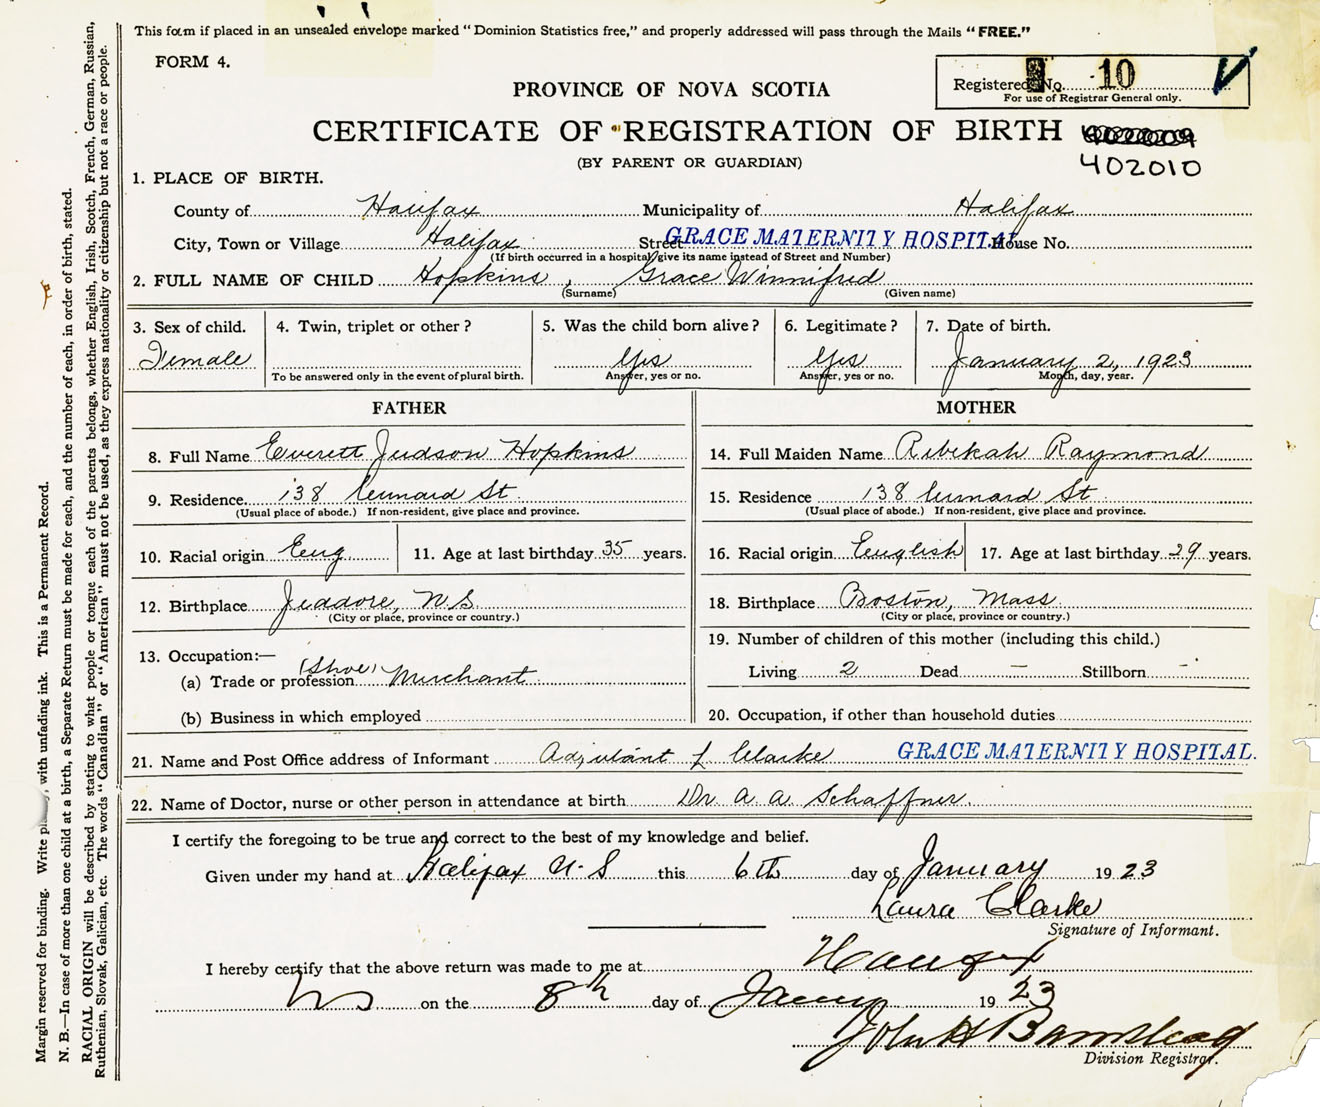 This form if placed in an unsealed envelope marked "Dominion Statistics free," and properly addressed will pass through the Mails "FREE."
FORM 4.
Registered No. 10
For use of Registrar General only.
PROVINCE OF NOVA SCOTIA
CERTIFICATE OF REGISTRATION OF BIRTH
402010
(BY PARENT OR GUARDIAN)
1. PLACE OF BIRTH.
County of Halifax Municipality of Halifax
City, Town or Village Halifax Street GRACE MATERNITY HOSPITAL House No.
(If birth occurred in a hospital give its name instead of Street and Number)
2. FULL NAME OF CHILD Hopkins, Grace Winnifred
(Surname) (Given name)
3. Sex of child. Female
4. Twin, triplet or other?
To be answered only in the event of plural birth.
5. Was the child born alive? Yes
Answer, yes or no.
6. Legitimate? Yes
Answer, yes or no.
7. Date of birth.
January 2, 1923
Month, day, year.
FATHER
8. Full Name Everett Judson Hopkins
9. Residence 138 St
(Usual place of abode.) If non-resident, give place and province.
10. Racial origin Eng
11. Age at last birthday 35 years.
12. Birthplace Jeddore, N.S.
(City or place, province or country.)
13. Occupation:—
(a) Trade or profession (Shoe) Merchant
(b) Business in which employed
MOTHER
14. Full Maiden Name Rebekah Raymond
15. Residence 138 St
(Usual place of abode.) If non-resident, give place and province.
16. Racial origin English
17. Age at last birthday 29 years.
18. Birthplace Boston, Mass.
(City or place, province or country.)
19. Number of children of this mother (including this child.)
Living 2 Dead — Stillborn -
20. Occupation, if other than household duties
21. Name and Post Office address of Informant Adjutant L Clarke GRACE MATERNITY HOSPITAL.
22. Name of Doctor, nurse or other person in attendance at birth Dr. A. A. Schaffner.
I certify the foregoing to be true and correct to the best of my knowledge and belief.
Given under my hand at Halifax N.S this 6th day of January 1923
Laura Clarke
Signature of Informant.
I hereby certify that the above return was made to me at Halifax
NS on the 8th day of January 1923
John H Barnstead
Division Registrar.
Margin reserved for binding. Write, with unfading ink. This is a Permanent Record.
N. B.—In case of more than one child at a birth, a Separate Return must be made for each, and the number of each, in order of birth, stated.
RACIAL ORIGIN will be described by stating to what people or tongue each of the parents belongs, whether English, Irish, Scotch, French, German, Russian,
Ruthenian, Slovak, Galician, etc. The words "Canadian" or "American" must not be used, as they express nationality or citizenship but not a race or people.